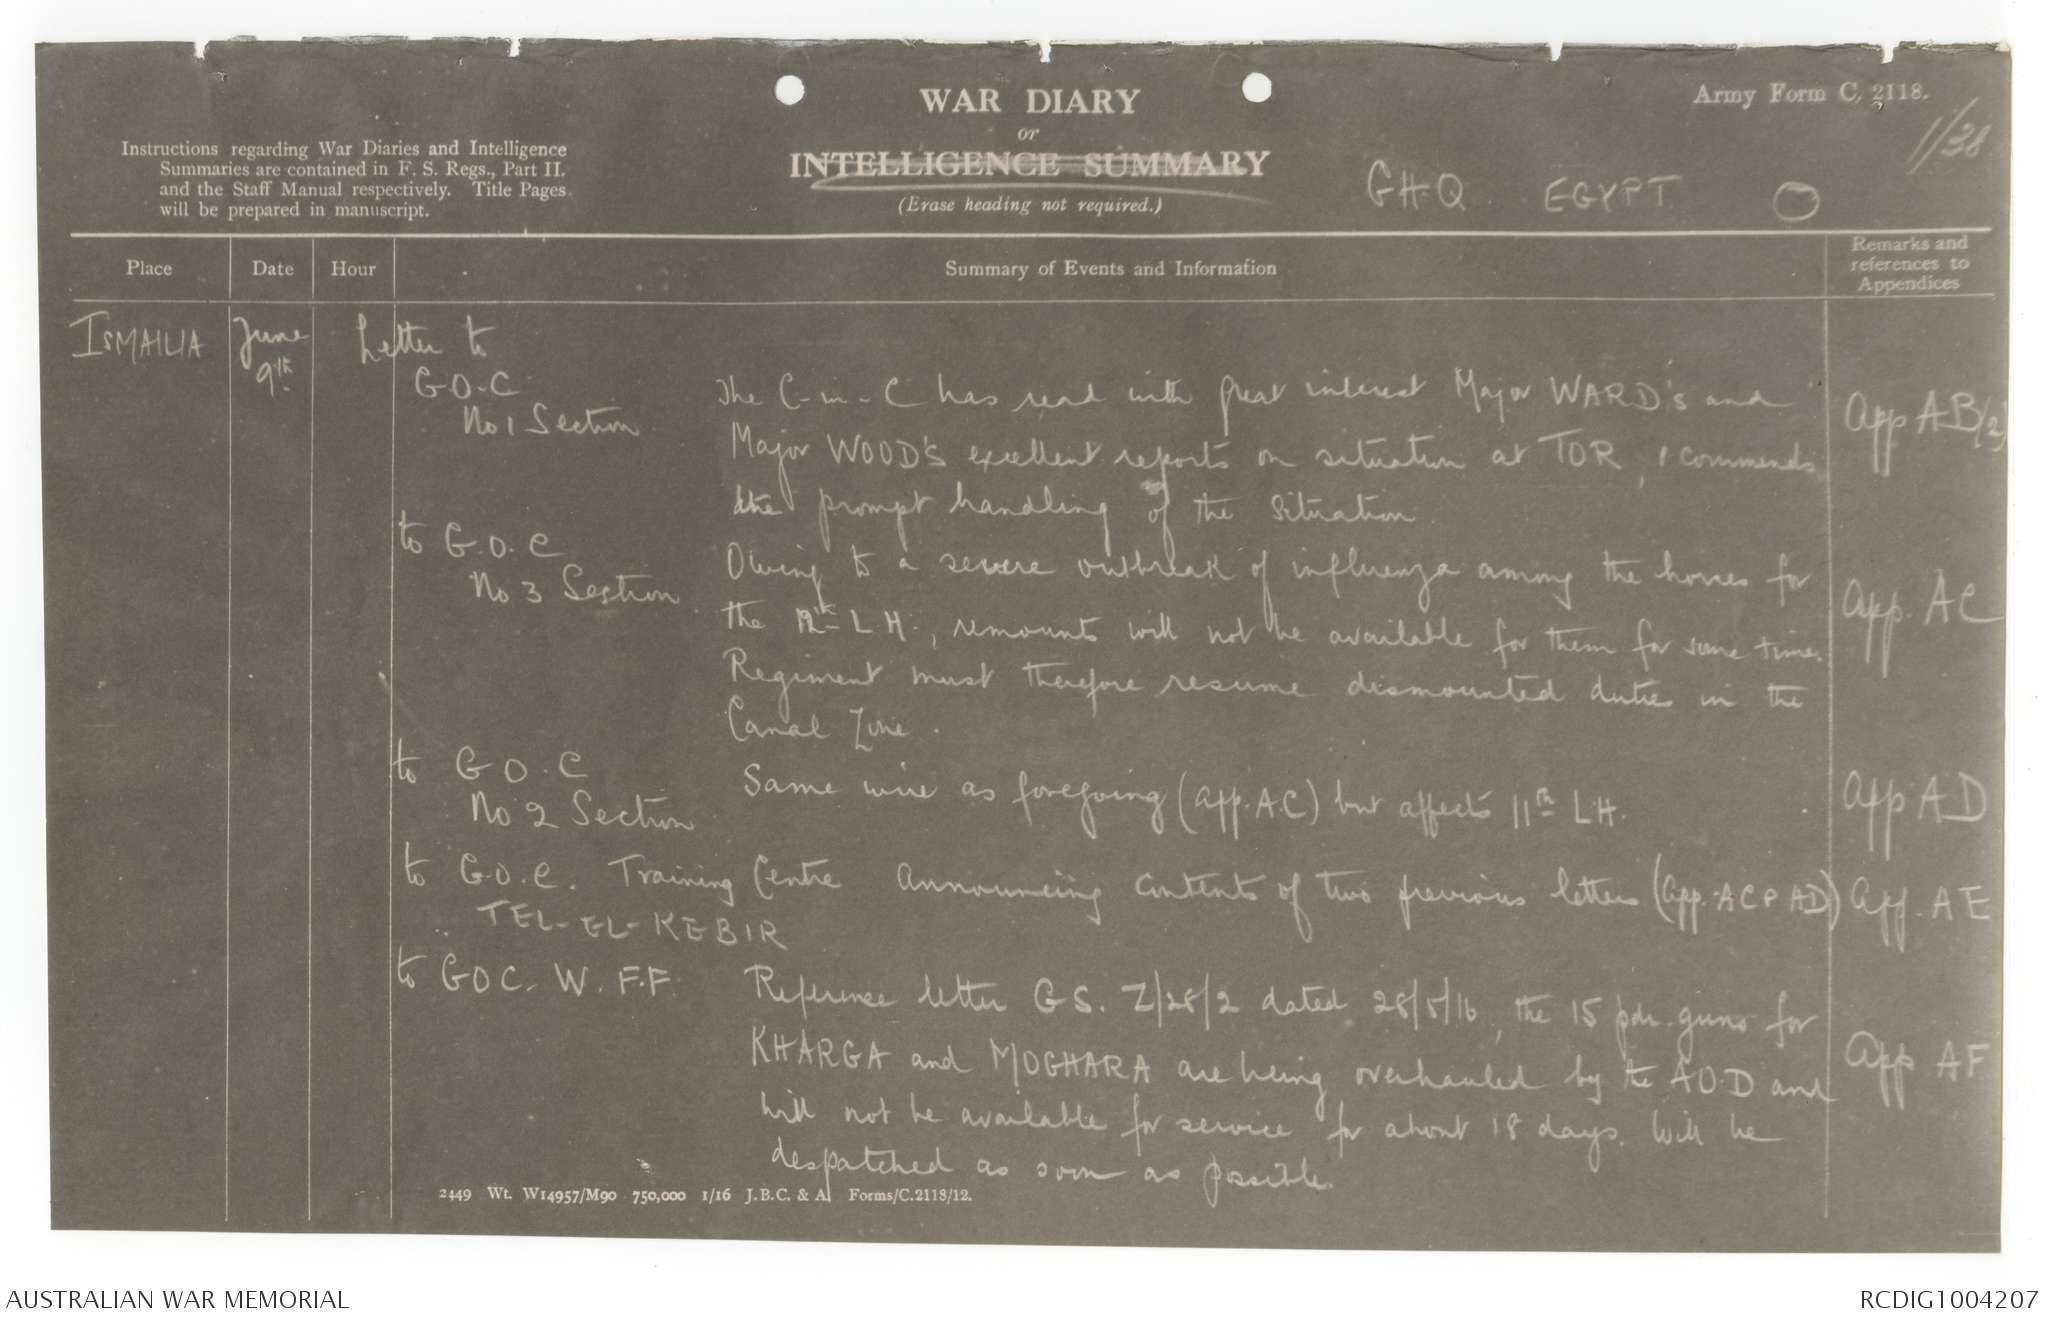 WAR DIARY
or
INTELLIGENCE SUMMARY
(Erase heading not required.)
Army Form C. 2118.
1/38
Instructions regarding War Diaries and Intelligence
Summaries are contained in F. S. Regs., Part II.
and the Staff Manual respectively. Title Pages
will be prepared in manuscript.
GHQ EGYPT
Place
Date
Hour
Summary of Events and Information
Remarks and
references to
Appendices
ISMAILIA
June
9th
Letter to
G.O.C
No 1 Section
The C-in-C has read with great interest Major WARD's and
Major WOOD's excellent reports on situation at TOR, & commends
the prompt handling of the situation
App AB(2)
to G.O.C
No 3 Section
Owing to a severe outbreak of influenza among the horses for
the 12th LH., remounts will not be available for them for some time.
Regiment must therefore resume dismounted duties in the
Canal Zone.
App. AC
to G.O.C
No 2 Section
Same wire as foregoing (App. A.C) but affects 11th LH.
App AD
to G.O.C. Training Centre announcing contents of two previous letters (App. AC & AD)
TEL-EL-KEBIR
App. AE
to GOC. W.F.F.
Reference letter GS. Z/28/2 dated 28/5/16, the 15 pdr. guns for
KHARGA and MOGHARA are being overhauled by the AOD and
will not be available for service for about 18 days. Will be
despatched as soon as possible.
App AF
2449 Wt. W14957/M90 750,000 1/16 J.B.C. & A. Forms/C.2118/12.
AUSTRALIAN WAR MEMORIAL
RCDIG1004207